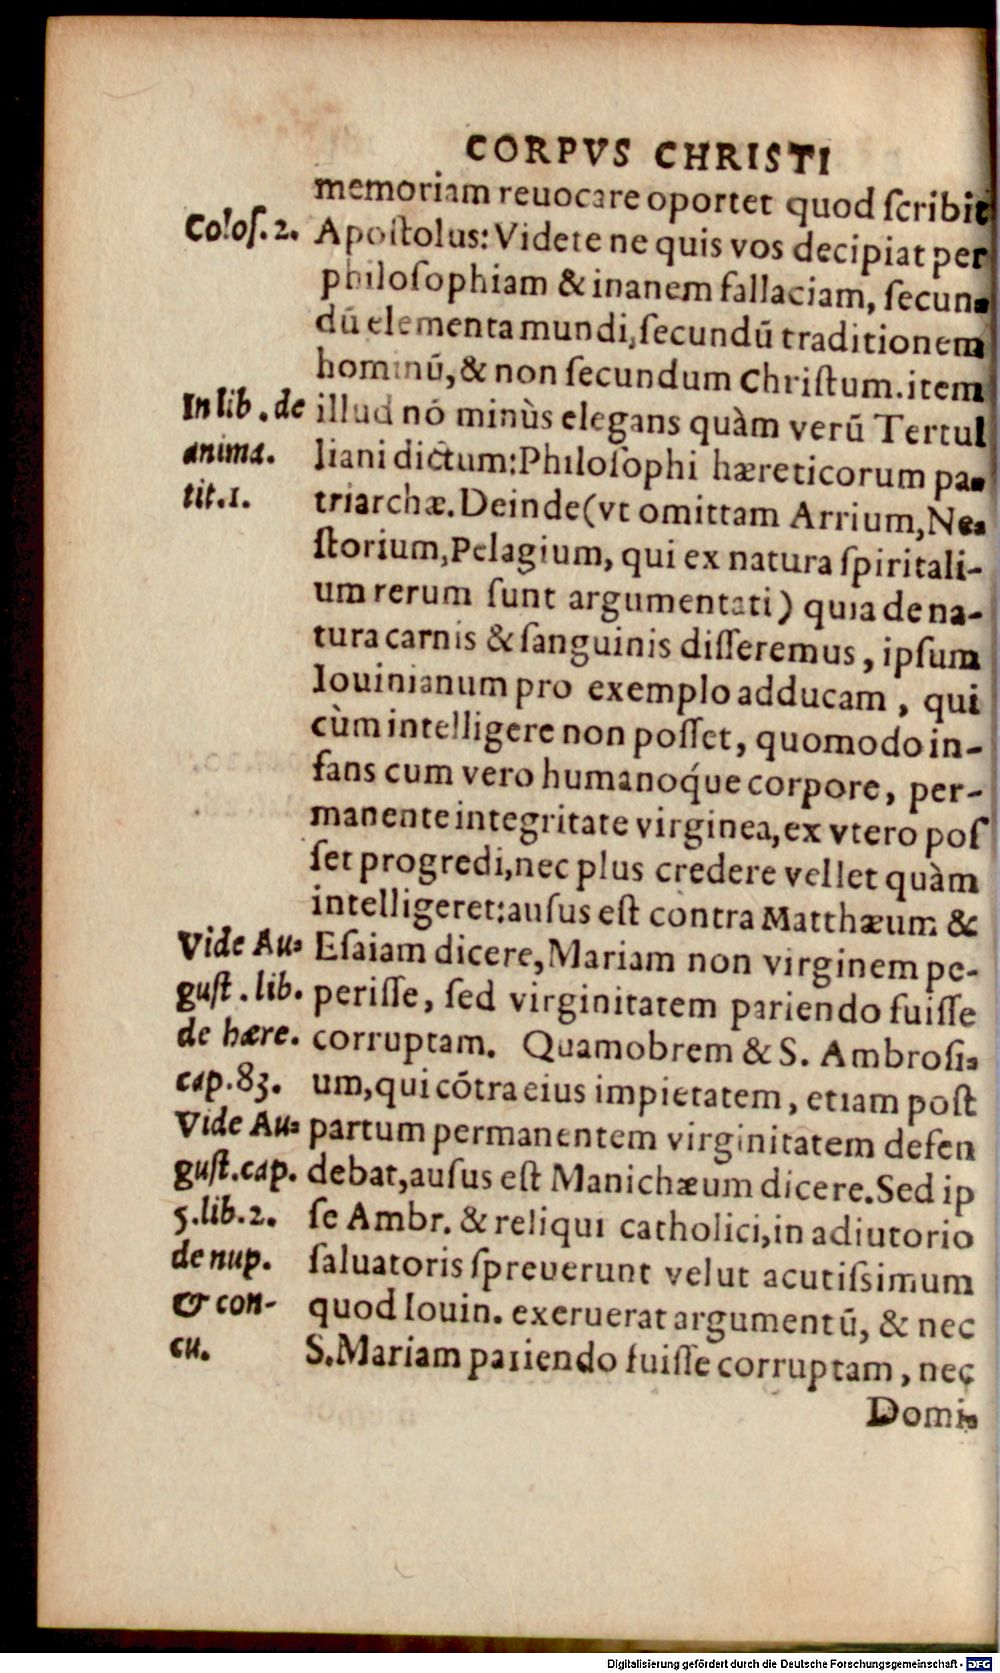 CORPVS CHRISTI
memoriam reuocare oportet quod ſcribit
Coloſ. 2. Apoſtolus: Videte ne quis vos decipiat per
philoſophiam & inanem fallaciam, ſecun-
dū elementa mundi, ſecundū traditionem
hominū, & non ſecundum Chriſtum. item
In lib. de illud nō minùs elegans quàm verū Tertul
anima. liani dictum: Philoſophi hæreticorum pa-
tit. 1. triarchæ. Deinde (vt omittam Arrium, Ne-
ſtorium, Pelagium, qui ex natura ſpiritali-
um rerum ſunt argumentati) quia de na-
tura carnis & ſanguinis diſſeremus, ipſum
Iouinianum pro exemplo adducam, qui
cùm intelligere non poſſet, quomodo in-
fans cum vero humanoq́ue corpore, per-
manente integritate virginea, ex vtero poſ
ſet progredi, nec plus credere vellet quàm
intelligeret: auſus eſt contra Matthæum &
Vide Au- Eſaiam dicere, Mariam non virginem pe-
guſt. lib. periſſe, ſed virginitatem pariendo fuiſſe
de hære. corruptam. Quamobrem & S. Ambroſi-
cap. 83. um, qui cōtra eius impietatem, etiam poſt
Vide Au- partum permanentem virginitatem defen
guſt. cap. debat, auſus eſt Manichæum dicere. Sed ip
5. lib. 2. ſe Ambr. & reliqui catholici, in adiutorio
de nup. ſaluatoris ſpreuerunt velut acutiſsimum
& con- quod Iouin. exeruerat argumentū, & nec
cu. S. Mariam pariendo fuiſſe corruptam, nec
Domi-
Digitalisierung gefördert durch die Deutsche Forschungsgemeinschaft - DFG